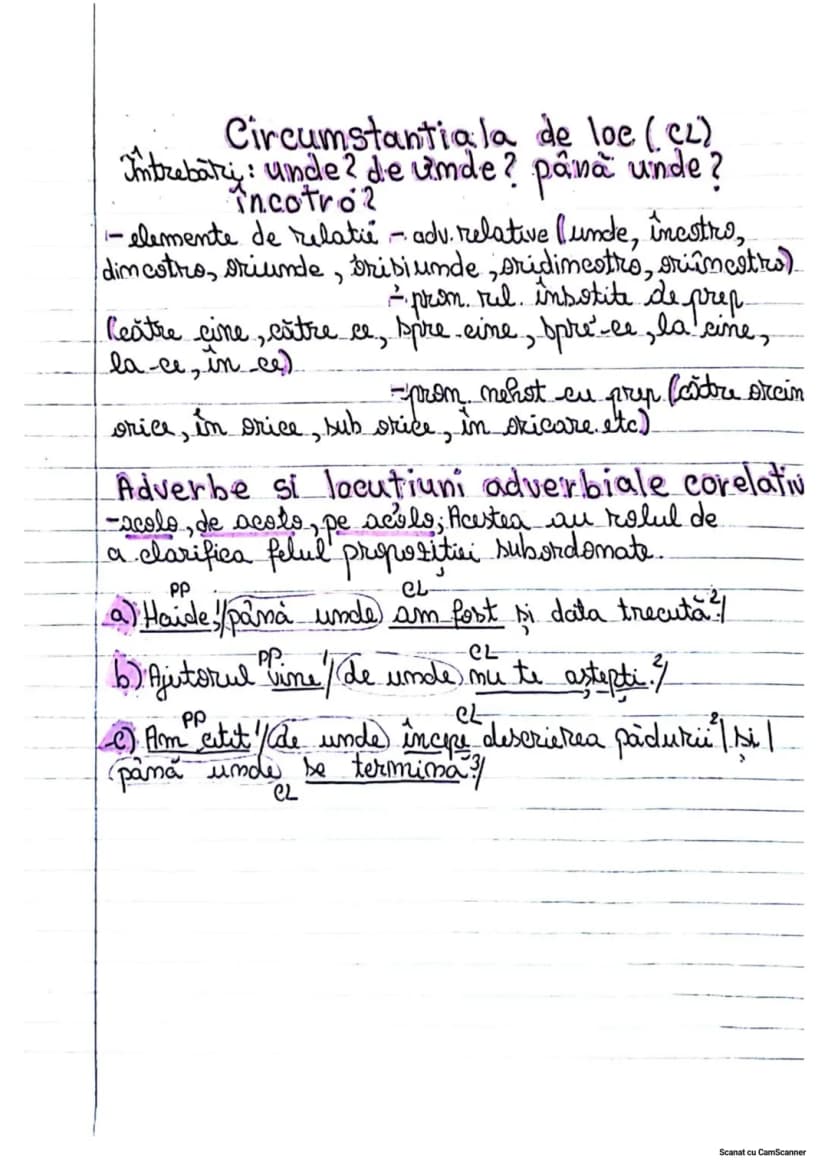 Circumstantiala de loc (CL)
Întrebări: unde? de unde? până unde?
încotro?
- elemente de relatii - adv. relative (unde, încotro,
dincotro, oriunde, orisiunde, oridincotro, oriîncotro)
- pron. rel. însotite de prep
(către cine, către ce, spre cine, spre ce, la cine,
la ce, în ce)
- pron. nehot cu prep (către oricin
orice, în orice, sub orice, în oricare. etc)
Adverbe si locutiuni adverbiale corelativ
- acolo, de acolo, pe acolo; Acestea au rolul de
a clarifica felul propoziției subordonate.
PP CL
a) Haide!¹/până unde am fost și data trecută.²/
PP CL
b) Ajutorul vine¹/de unde nu te aștepți.²/
PP CL
c) Am citit¹/de unde începe descrierea pădurii²/și/
până unde se termina.³/
CL
Scanat cu CamScanner